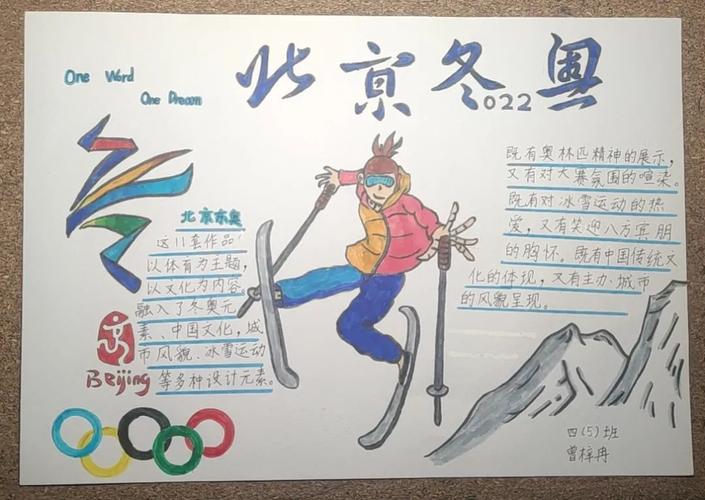 One Word
One Dream
北京冬奥
2022
北京冬奥
这11套作品
以体育为主题,
以文化为内容。
融入了冬奥元
素、中国文化,城
市风貌、冰雪运动
等多种设计元素。
Beijing
既有奥林匹精神的展示,
又有对大赛氛围的喧染。
既有对冰雪运动的热
爱,又有笑迎八方宾朋
的胸怀。既有中国传统文
化的体现,又有主办城市
的风貌呈现。
四(5)班
曾梓冉